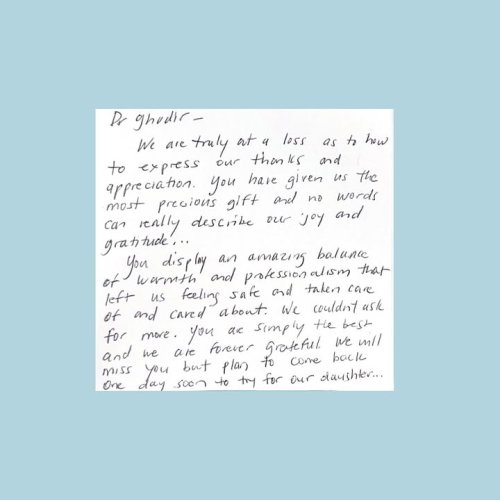 Dr ghadir -
We are truly at a loss as to how
to express our thanks and
appreciation. You have given us the
most precious gift and no words
can really describe our joy and
gratitude...
You display an amazing balance
of warmth and professionalism that
left us feeling safe and taken care
of and cared about. We couldnt ask
for more. You are simply the best
and we are forever grateful. We will
miss you but plan to come back
one day soon to try for our daughter...